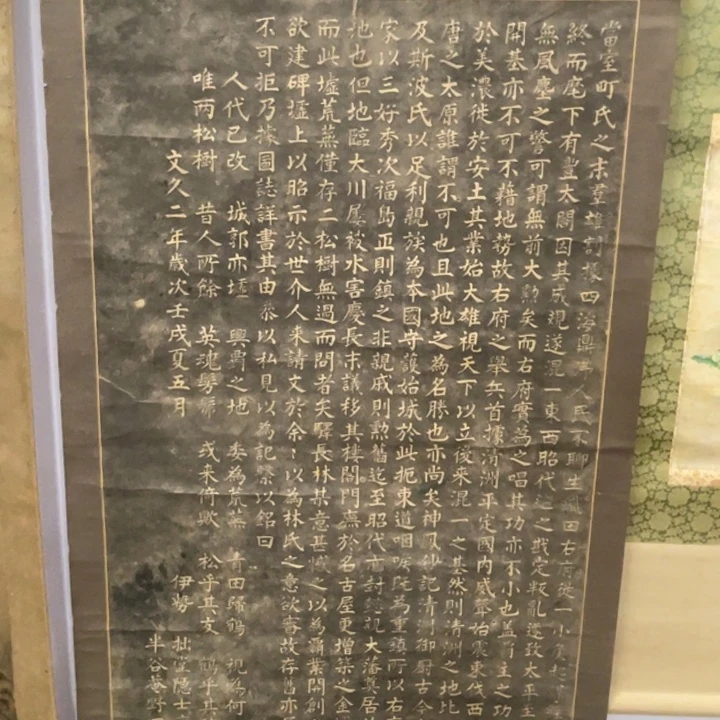 當室町氏之末群雄割據四海鼎沸人民不聊生織田右府從一小
終而麾下有豐太閤因其成規遂混一東西昭代迄之戡定叛亂遂致太平至
無風塵之警可謂無前大勲矣而右府實為之唱其功亦不小也蓋前主之功
開基亦不可不藉地務故右府之舉兵首據清洲平定國内威聲始震東伐西
於美濃徙於安土其業始大雄視天下以立後來混一之基然則清洲之地比
唐之太原誰謂不可也且此地之為名勝也亦尚矣神乃抄記清洲御厨古今
及斯波氏以足利親族為本國守護始城於此扼東道咽喉隱為重鎮而以右
家以三好秀次福島正則鎮之非親戚則勲舊迄至昭代亦封懿親大藩奠居
地也但地臨大川屢被水害慶長末議移其樓閣門廡於名古屋更增築之金
而此墟荒蕪僅存二松樹無過而問者矣驛長林某意甚慨之以為霸業開創
欲建碑墟上以昭示於世介人來請文於余余以為林氏之意欲審故存舊亦
不可拒乃據圖誌詳書其由參以私見以為記繫以銘曰
人代已改 城郭亦墟 興霸之地 委為荒蕪 青田歸鶴 視為何
唯兩松樹 昔人所餘 英魂髣髴 或来倚歟 松乎其友 鶴乎其
文久二年歲次壬戌夏五月 伊勢 拙堂隱士
半谷菴野